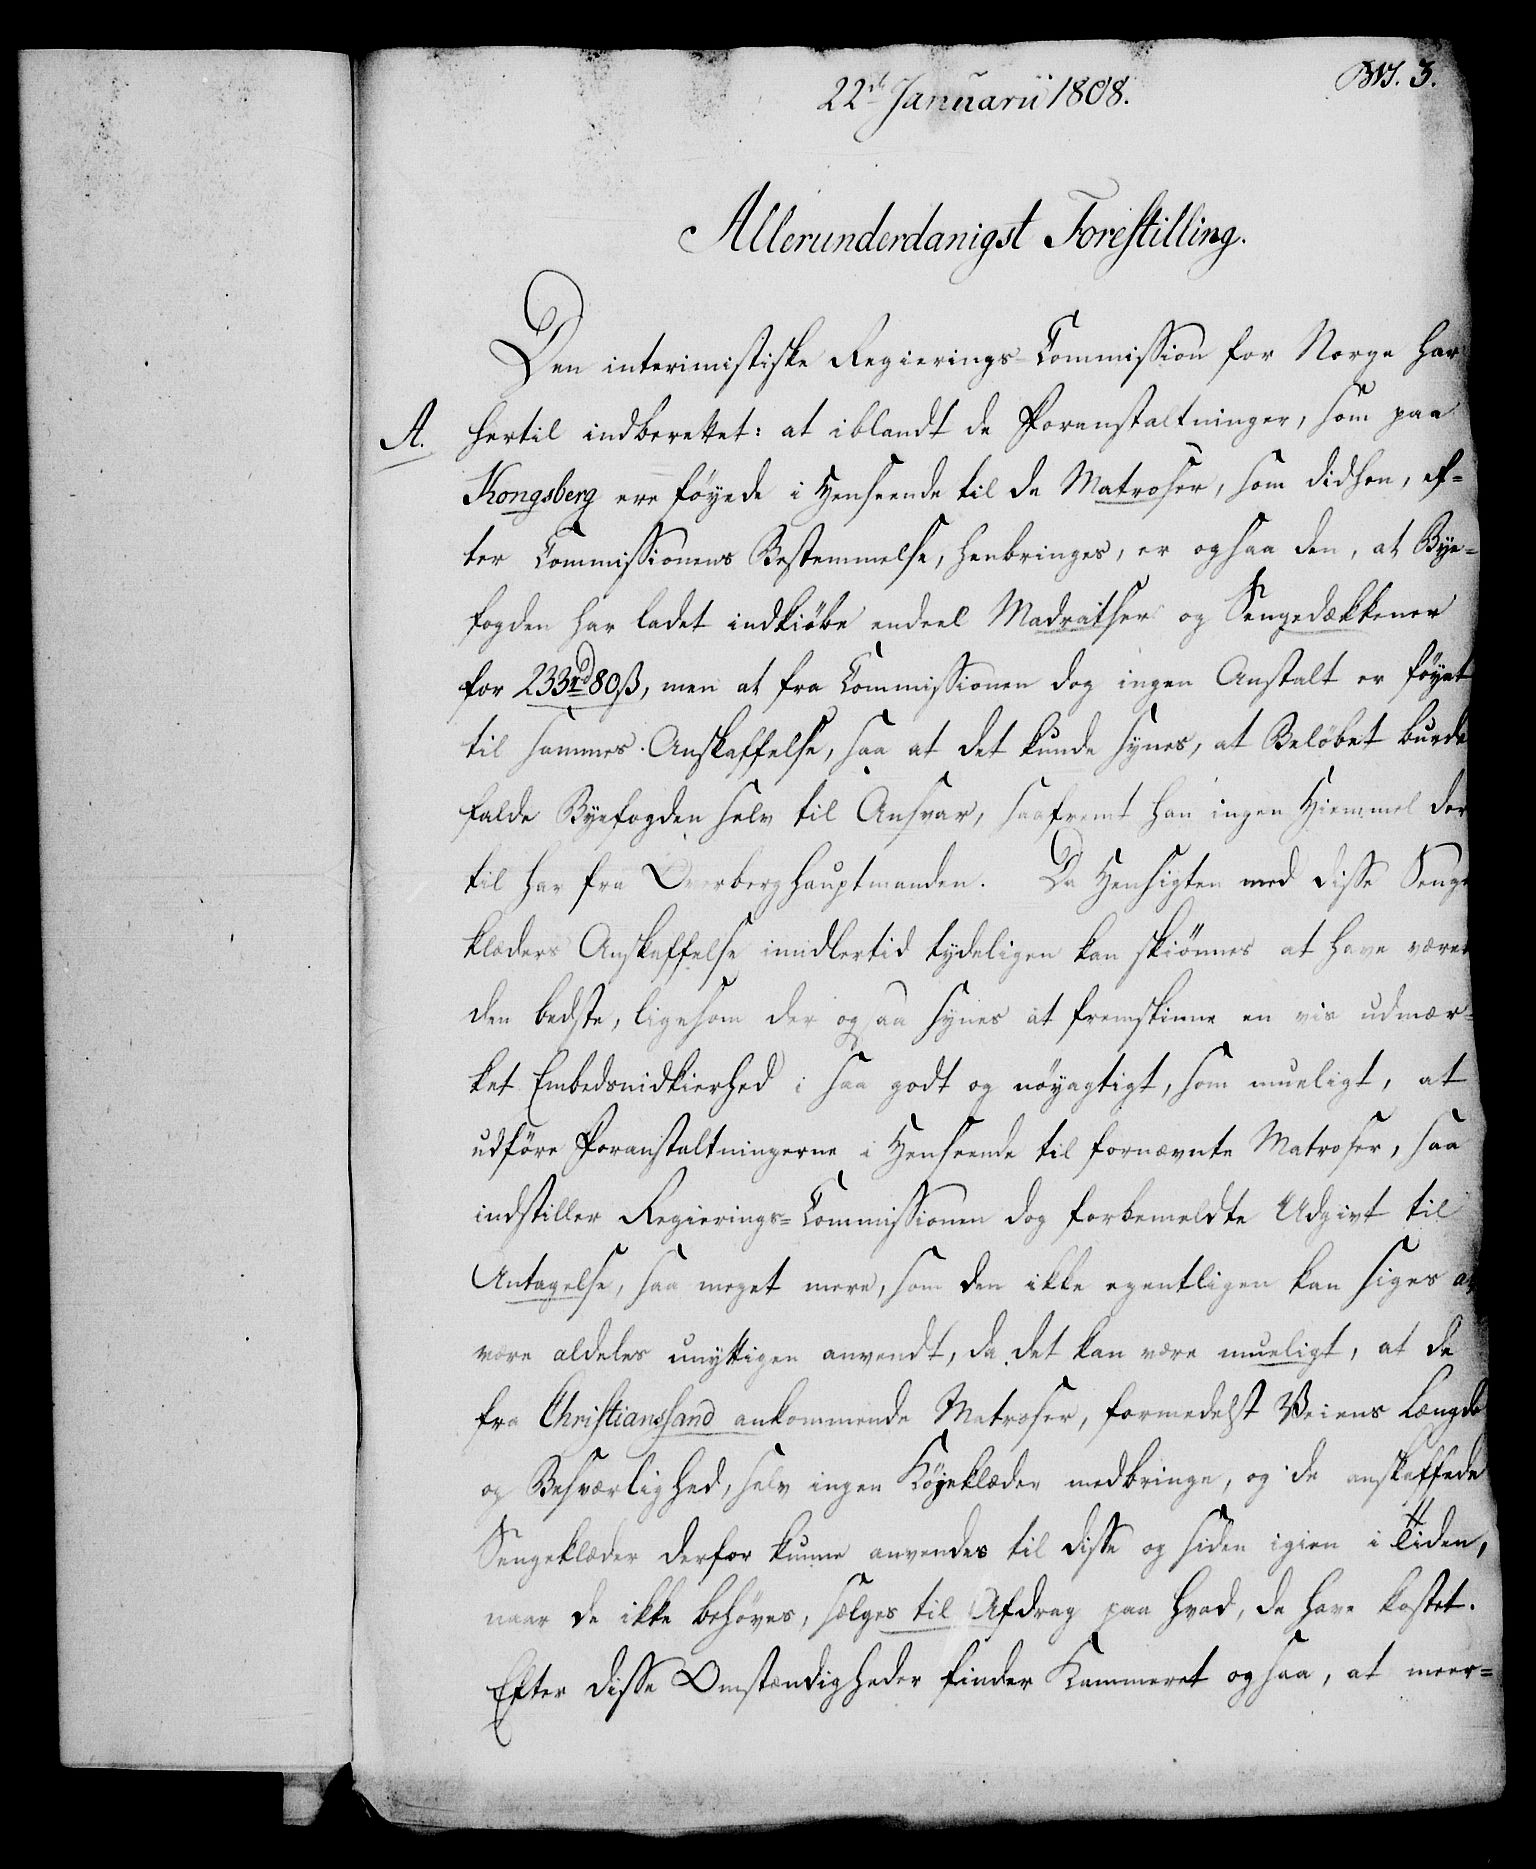 22de Januarii 1808.
3.
Allerunderdanigst Forestilling.
Den interimistiske Regierings-Commission for Norge har
A. hertil indberettet: at iblandt de Foranstaltninger, som paa
Kongsberg ere föyede i Henseende til de Matroser, som didhen, ef-
ter Commissionens Bestemmelse, henbringes, er ogsaa den, at Bye-
fogden har ladet indkiöbe endeel Madratser og Sengedækkener
for 233rd 80ß, men at fra Commissionen dog ingen Anstalt er föyet
til sammes Anskaffelse, saa at det kunde synes, at Belöbet burde
falde Byefogden selv til Ansvar, saafremt han ingen Hiemmel der
til har fra Overberghauptmanden. Da Hensigten med disse Senge
klæders Anskaffelse imidlertid tydeligen kan skiönnes at have været
den bedste, ligesom der ogsaa synes at fremskinne en vis udmær-
ket Embedsnidkierhed i saa godt og nöyagtigt, som mueligt, at
udföre Foranstaltningerne i Henseende til fornævnte Matroser, saa
indstiller Regierings-Commissionen dog forbemeldte Udgivt til
Antagelse, saa meget mere, som den ikke egentligen kan siges at
være aldeles unyttigen anvendt, da det kan være mueligt, at de
fra Christianssand ankommende Matroser, formedelst Veiens Længde
og Besværlighed, selv ingen Köjeklæder medbringe, og de anskaffede
Sengeklæder derfor kunne anvendes til disse og siden igien i Tiden,
naar de ikke behöves, sælges til Afdrag paa hvad, de have kostet.
Efter disse Omstændigheder finder Kammeret ogsaa, at meer-